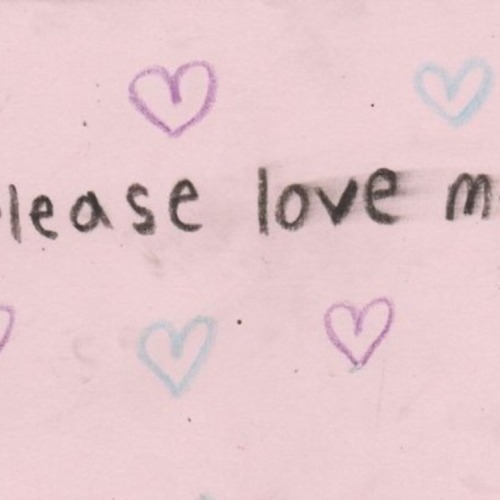 lease love m